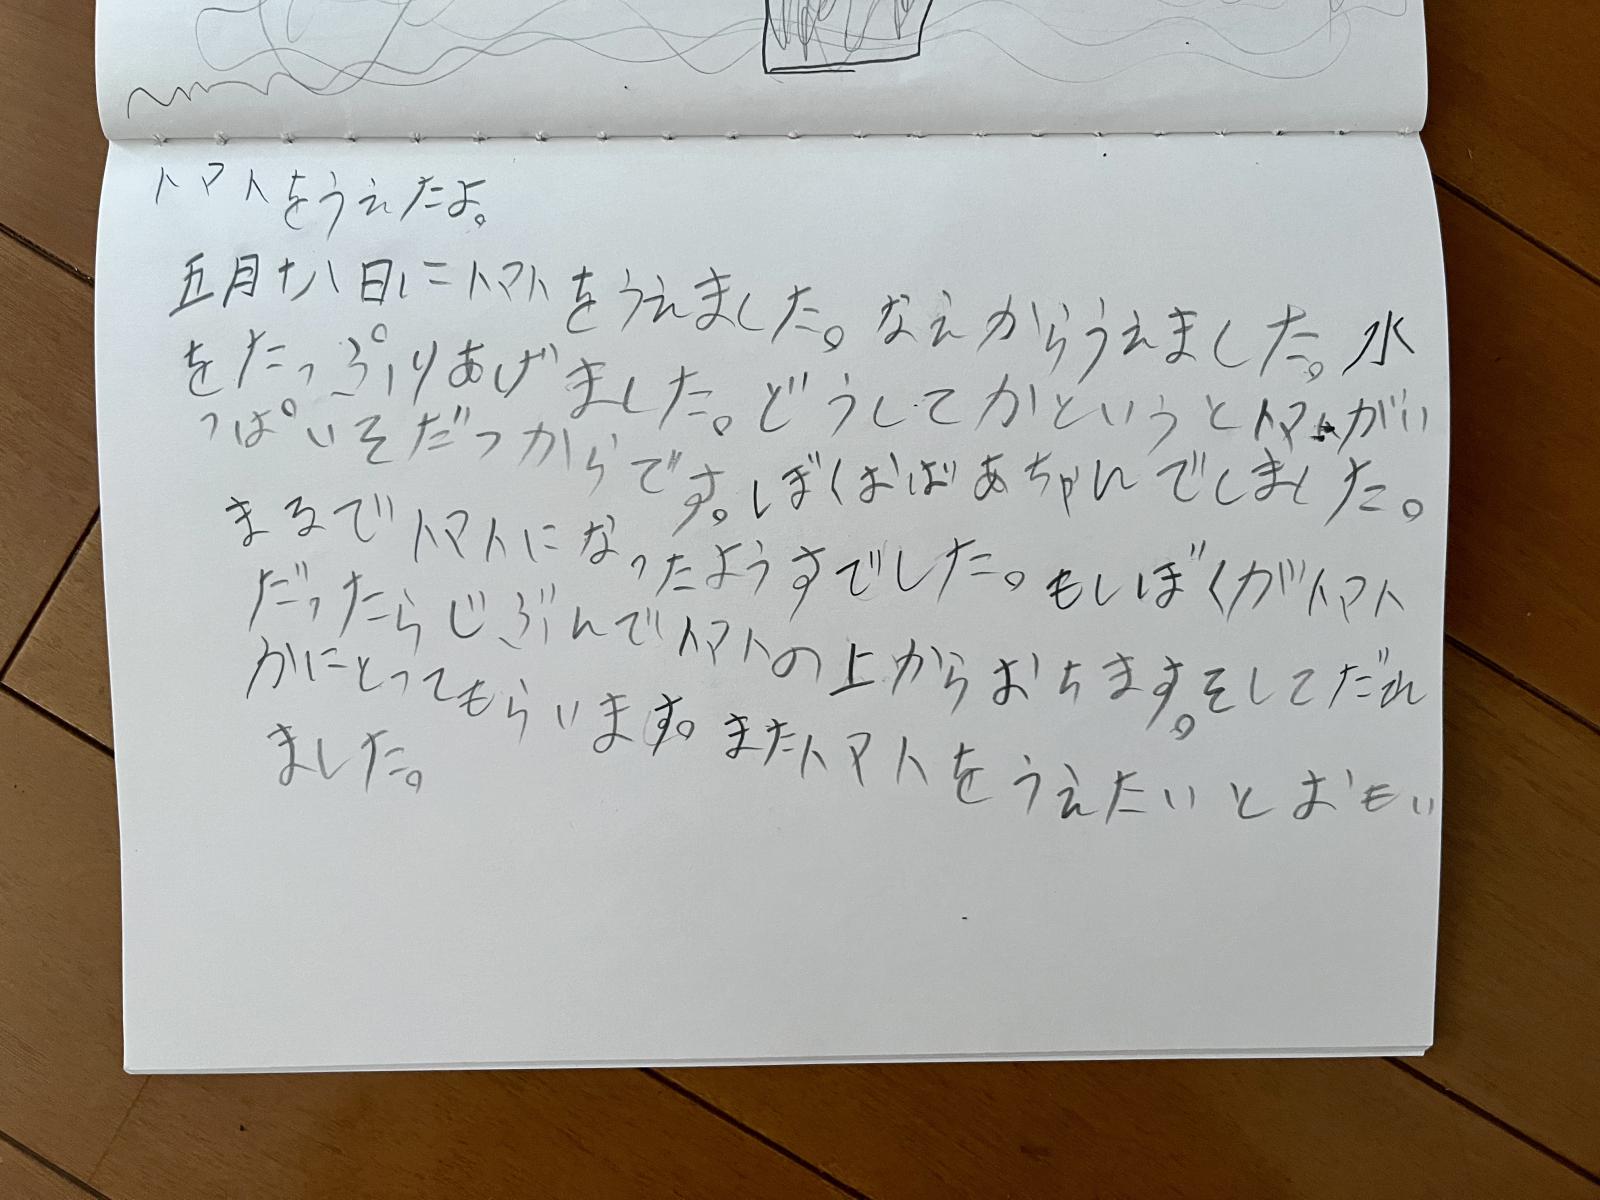 トマトをうえたよ。
五月十八日にトマトをうえました。なえからうえました。水
をたっぷりあげました。どうしてかというとトマトがい
っぱいそだつからです。ぼくはばあちゃんでしました。
まるでトマトになったようすでした。もしぼくがトマト
だったらじぶんでトマトの上からおちます。そしてだれ
かにとってもらいます。またトマトをうえたいとおもい
ました。